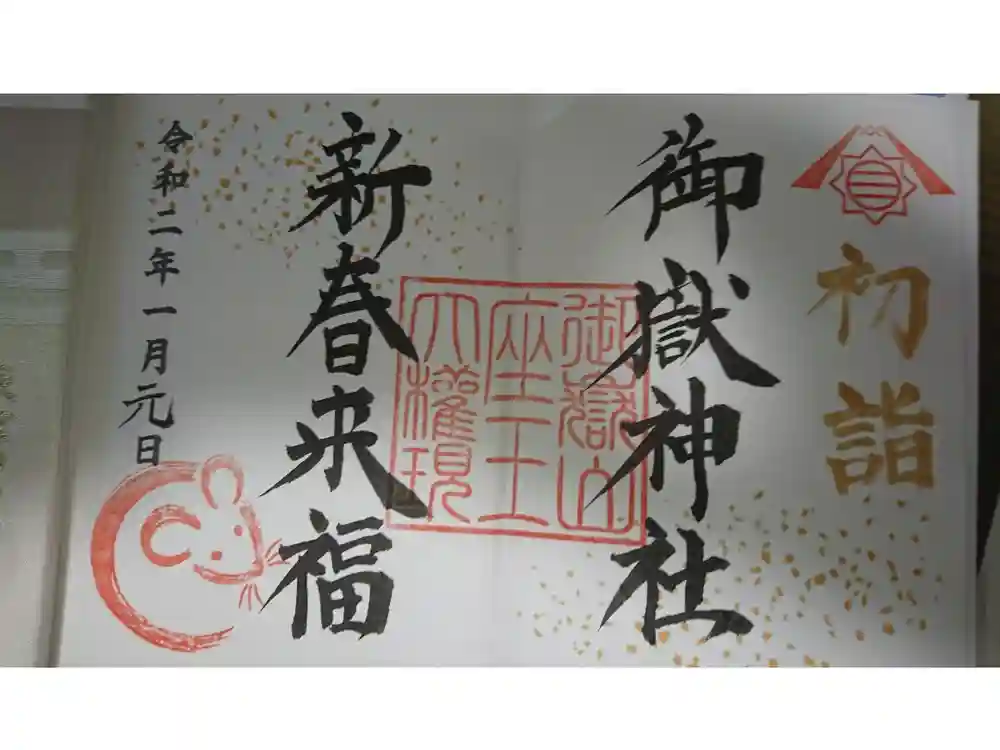 初詣
御嶽神社
御嶽山
座王
大権現
新春来福
令和二年一月元日